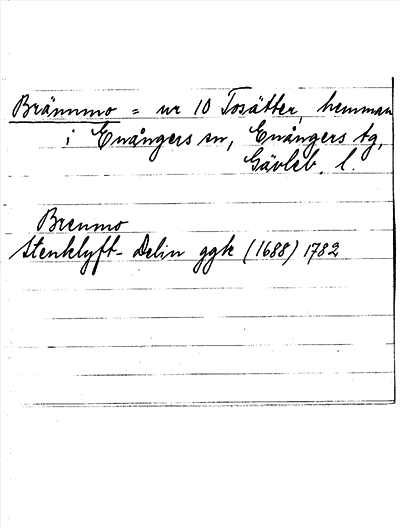 Brännmo = nr 10 Tosätter, hemman
i Enångers sn, Enångers tg,
Gävleb. l.
Brenmo
Stenklyft-Delin ggk (1688) 1782